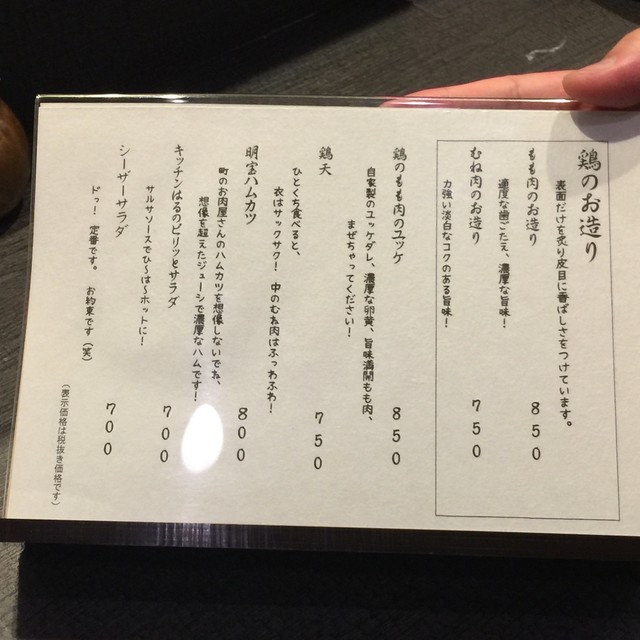 鶏のお造り
表面だけを炙り皮目に香ばしさをつけています。
もも肉のお造り
適度な歯ごたえ、濃厚な旨味!
850
むね肉のお造り
力強い淡白なコクのある旨味!
750
鶏のもも肉のユッケ
自家製のユッケダレ、濃厚な卵黄、旨味満開もも肉、
まぜちゃってください!
850
鶏天
ひとくち食べると、
衣はサックサク! 中のむね肉はふわふわ!
750
明宝ハムカツ
町のお肉屋さんのハムカツを想像しないでね、
想像を超えたジューシで濃厚なハムです!
800
キッチンはるのピリッとサラダ
サルサソースでひ〜は〜ホットに!
700
シーザーサラダ
ドっ! 定番です。 お約束です(笑)
700
(表示価格は税抜き価格です)